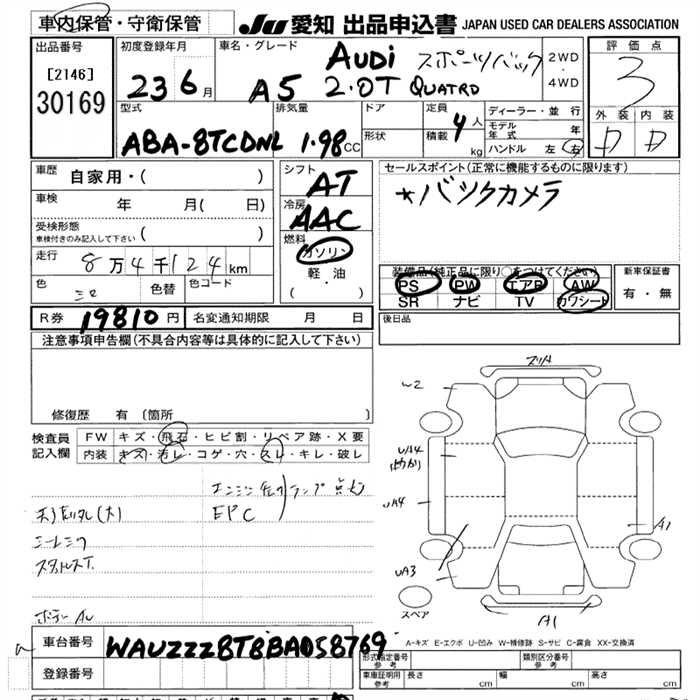 車内保管・守衛保管
JU 愛知 出品申込書 JAPAN USED CAR DEALERS ASSOCIATION
出品番号
[2146]
30169
初度登録年月
23 6 月
車名・グレード
AUDi スポーツバック
A5 2.0T QUATRO
2WD
・
4WD
評価点
3
外装 内装
D D
型式
ABA-8TCDNL
排気量
1.98 CC
ドア
形状
定員
4 人
積載 kg
ディーラー・並行
モデル年式 年
ハンドル 左・右
車歴
自家用・( )
車検 年 月( 日)
受検形態
車検付きのみ記入して下さい ( )
走行
8万4千124 km
色 色替 色コード
シフト
AT
冷房
AAC
燃料
ガソリン
軽・油
( ・ )
セールスポイント(正常に機能するものに限ります)
★バックカメラ
装備品(純正品に限り○をつけてください)
PS PW エアB AW
SR ナビ TV カワシート
新車保証書
有・無
R券 19810 円 名変通知期限 月 日
後日品
注意事項申告欄(不具合内容等は具体的に記入して下さい)
修復歴 有 〔箇所 〕
検査員記入欄
FW キズ・飛石・ヒビ割・リペア跡・X要
内装 キズ・汚レ・コゲ・穴・スレ・キレ・破レ
エンジン
ランプ点灯
EPC
W2
UA4
UA4
A1
UA3
スペア
A1
A-キズ E-エクボ U-凹み W-補修跡 S-サビ C-腐食 XX-交換済
車台番号
WAUZZZ8T8BA058769
登録番号
形式指定番号
参考
類別区分番号
参考
車庫証明用
参考
長さ cm 幅 cm 高さ cm